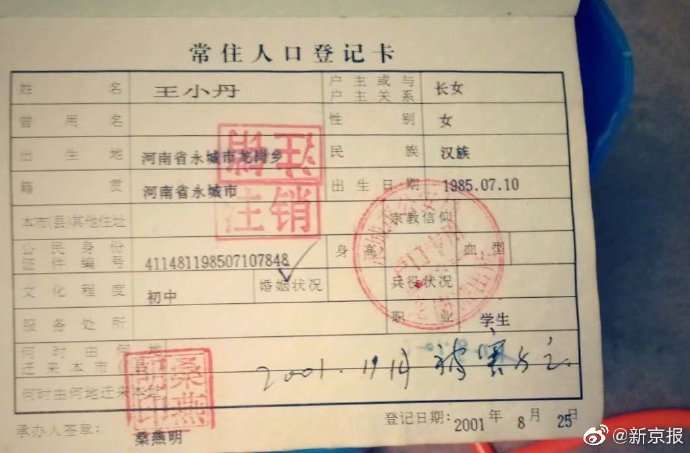 常住人口登记卡
姓名 王小丹 户主或与户主关系 长女
曾用名 性别 女
出生地 河南省永城市龙岗乡 民族 汉族
籍贯 河南省永城市 出生日期 1985.07.10
注销
本市(县)其他住址 宗教信仰
公民身份证件编号 411481198507107848 身高 血型
文化程度 初中 婚姻状况 兵役状况
服务处所 职业 学生
何时由何地迁来本市(县)
2001.11.14 被害死亡
何时由何地迁来本址
桑燕明印
承办人签章: 桑燕明 登记日期: 2001 年 8 月 25 日
@新京报